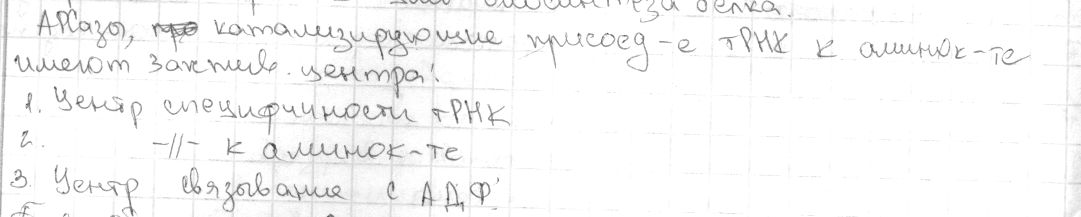 биосинтеза белка.
АРСазы, катализирующие присоед-е тРНК к аминок-те
имеют 3 актив. центра:
1. Центр специфичности тРНК
2. -//- к аминок-те
3. Центр связывание с АДФ